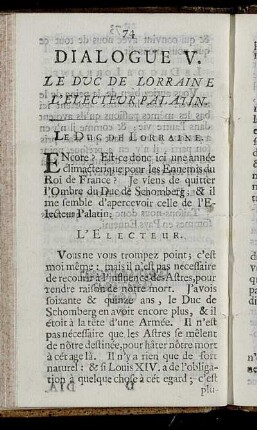 74
DIALOGUE V.
LE DUC DE LORRAINE
L'ELECTEUR PALATIN.
LE DUC DE LORRAINE.
ENcore ? Est-ce donc ici une année
climacterique pour les Ennemis du
Roi de France ? Je viens de quitter
l'Ombre du Duc de Schomberg, & il
me semble d'apercevoir celle de l'E-
lecteur Palatin.
L'ELECTEUR.
Vous ne vous trompez point ; c'est
moi même : mais il n'est pas necessaire
de recourir à l'influence des Astres, pour
rendre raison de nôtre mort. J'avois
soixante & quinze ans, le Duc de
Schomberg en avoit encore plus, & il
étoit à la tête d'une Armée. Il n'est
pas necessaire que les Astres se mêlent
de nôtre destinée, pour hâter nôtre mort
à cet age là. Il n'y a rien que de fort
naturel : & si Louis XIV. a de l'obliga-
tion à quelque chose à cét egard ; c'est
plu-